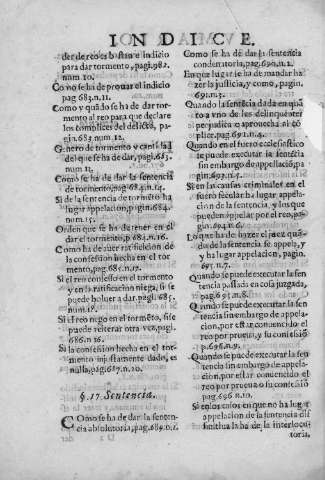 INDICE.
der de reo es bastante indicio
para dar tormento, pagi. 982.
num. 10.
Como se ha de prouar el indicio
pag. 683. n. 11.
Como y quādo se ha de dar tor-
mento al reo para que declare
los complices del delicto, pa-
gin. 683. num. 12.
Genero de tormento y cantidad
del que se ha de dar, pagi. 683.
num. 13.
Como se ha de dar la sentencia
de tormento, pag. 684. n. 14.
Si de la sentencia de tormēto ha
lugar appelacion, pagin. 684.
num. 15.
Orden que se ha de tener en el
dar el tormento, pag. n. 16.
Como ha de auer ratificacion de
la confession hecha en el tor-
mento, pag. 685. n. 17.
Si el reo confesso en el tormento
y en la ratificacion niega, si se
puede boluer a dar, pagi. 685.
num. 18.
Si el reo nego en el tormēto, si se
puede reiterar otra vez, pagi.
686. n. 16.
Si la confession hecha en el tor-
mento injustamente dado, es
nulla, pag. 687. n. 20.
§. 17. Sentencia.
Como se ha de dar la senten-
cia absolutoria, pag. 689. n. 1.
Como se ha de dar la sentencia
condenatoria, pag. 690. n. 2.
En que lugar se ha de mandar ha
zer la justicia, y como, pagin.
691. n. 3.
Quando la sentēcia dada en quā
to a vno de los delinquentes
perjudica o aprouecha al có
plice, pag. 691. n. 4.
Quando en el fuero ecclesiastico
se puede executar la sentēcia
sin embargo de appelacion, pa
gin. 693. n. 5.
Si en las causas criminales en el
fuero secular ha lugar appela-
cion de la sentencia, y los que
pueden appelar por el reo, pa-
gin. 694. n. 6.
Lo que ha de hazer el juez quā-
do de la sentencia se appela, y
y ha lugar appelacion, pagin.
695. n. 7.
Quando se puede executar la sen
tencia passada en cosa juzgada,
pag. 695. n. 8.
Quando se puede executar la sen
tencia sin embargo de appela-
cion, por estar conuencido el
reo por prueua, y su confessiō
p. 696. n. 9.
Quando se puede executar la sen
tencia sin embargo de appela-
cion, por estar conuencido el
reo por prueua o su confessiō
pag. 696 n. 10.
Si en los casos en que no ha lugar
appelacion de la sentencia dif
finitiua la ha de la interlocu
toria,